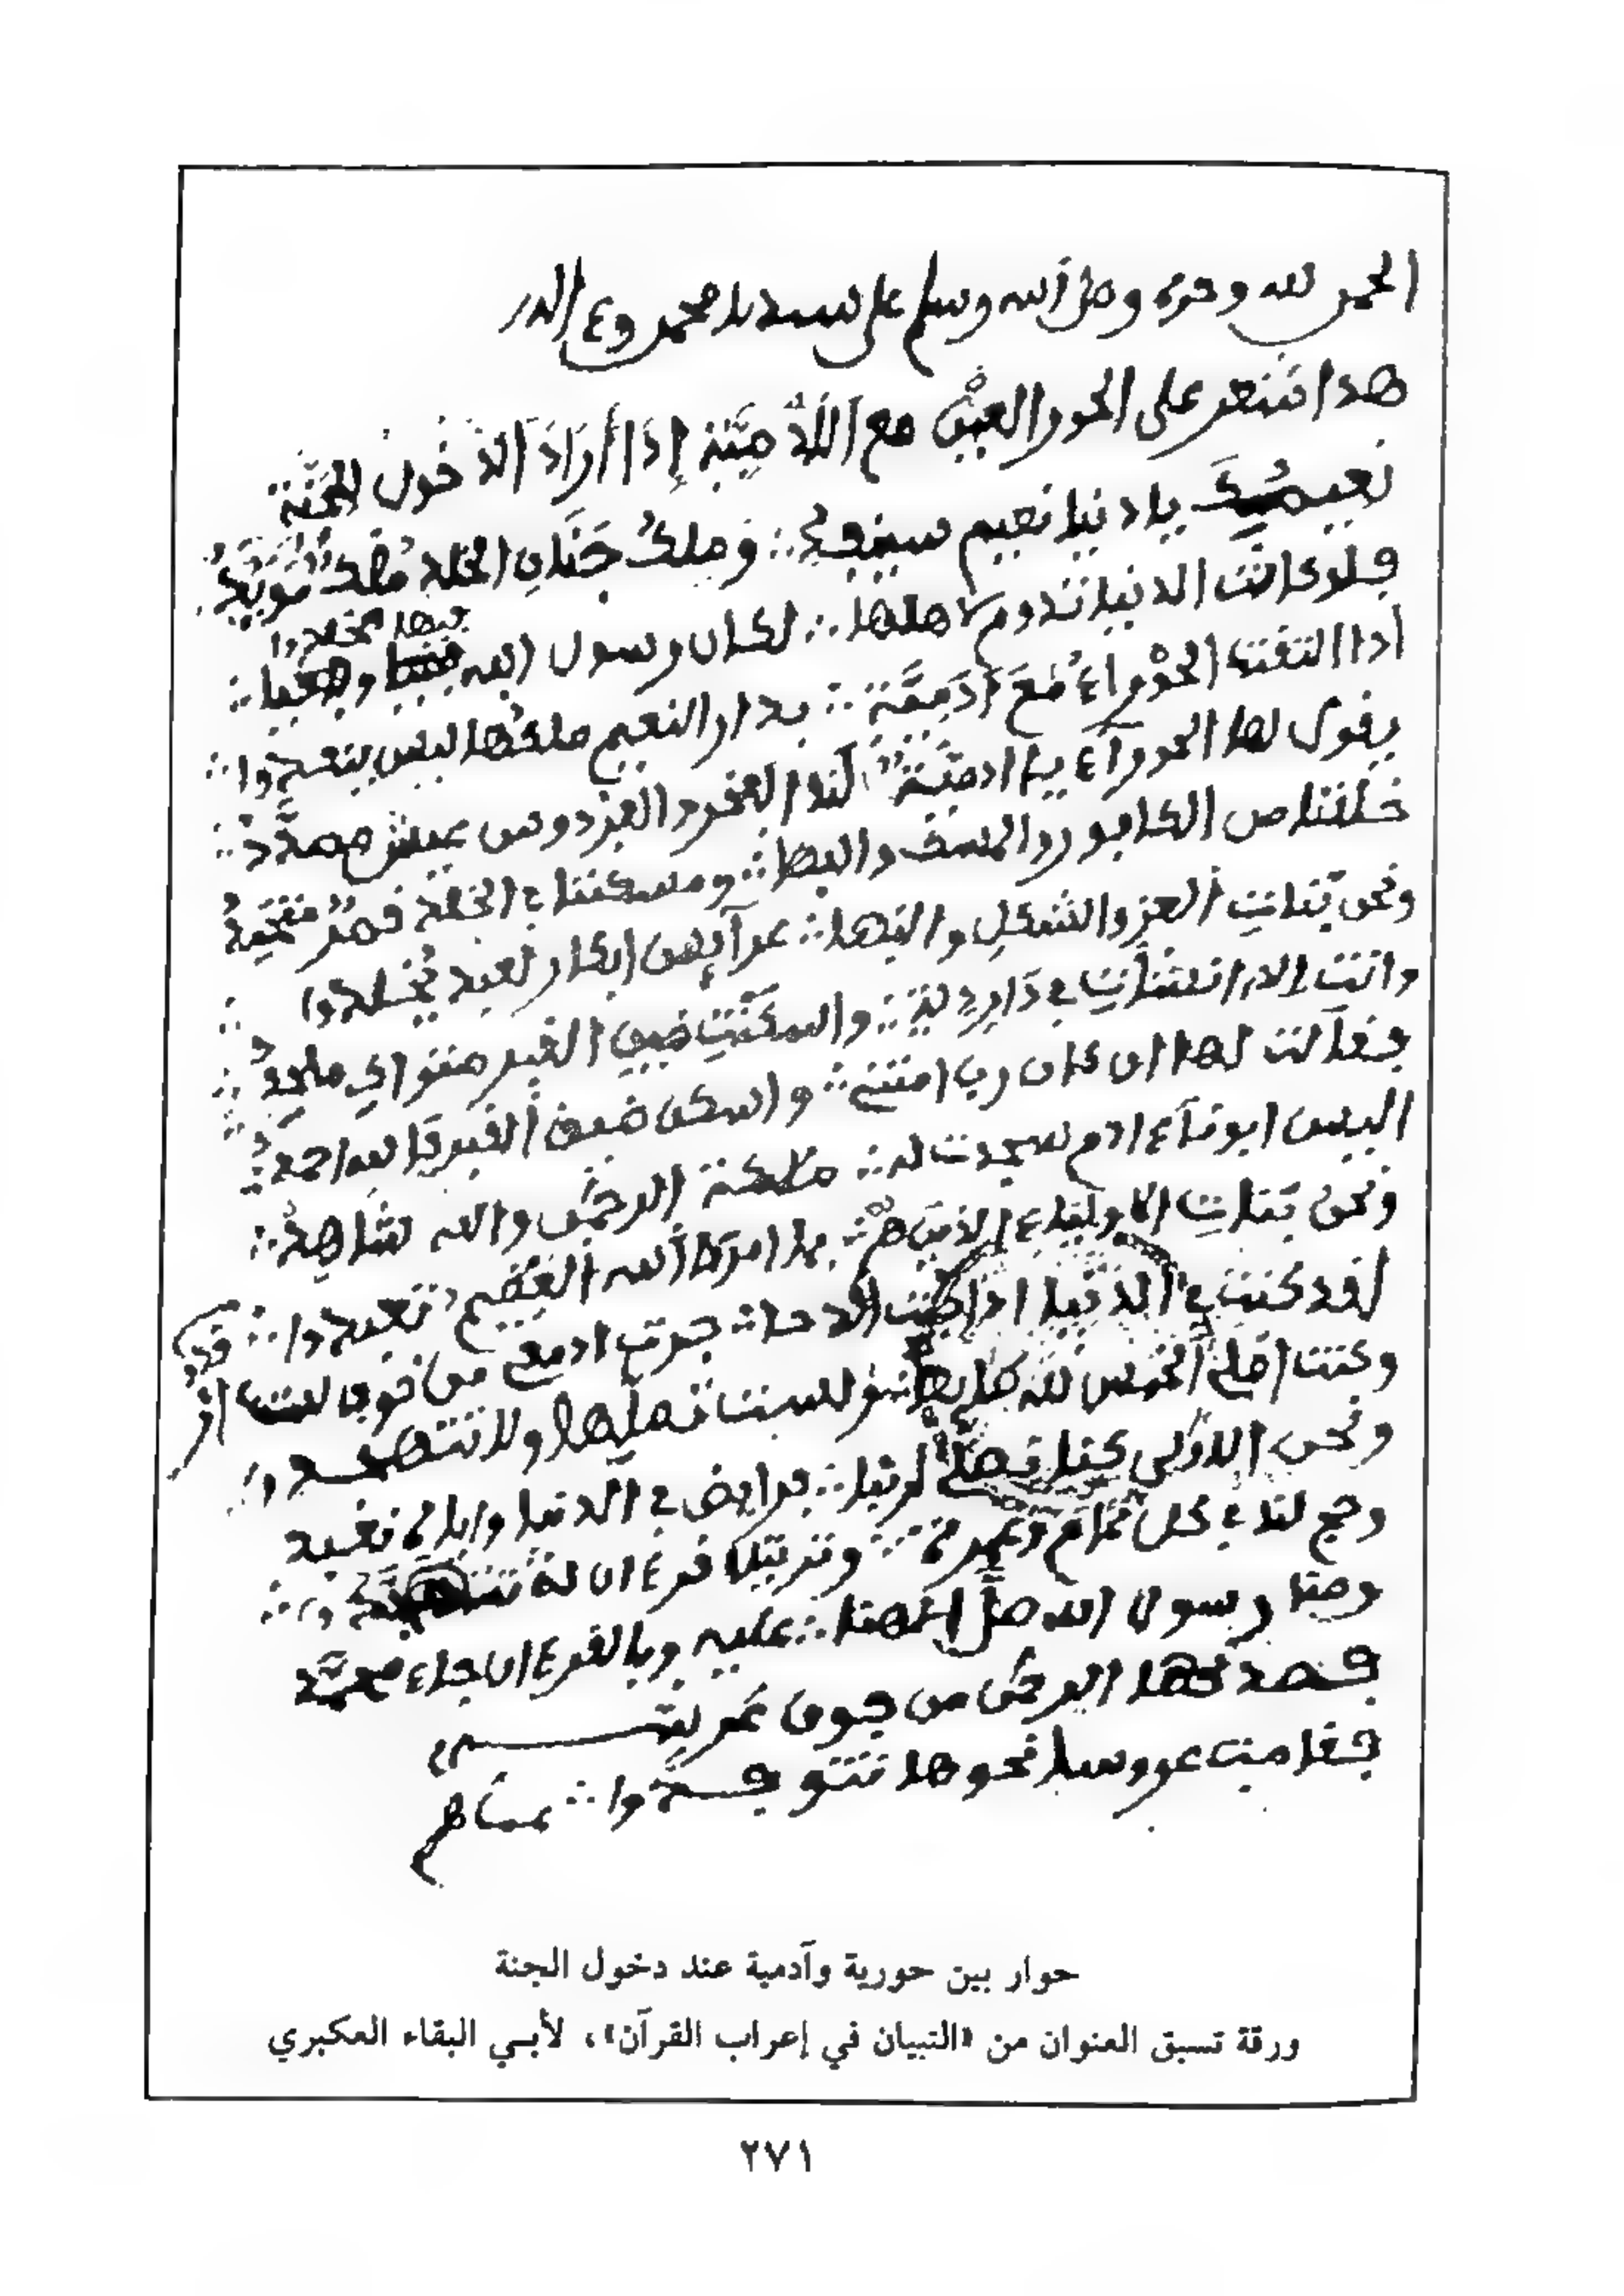 الحمد لله وحده وصلى الله وسلم على سيدنا محمد وعلى اله
هدا شعر على الحور العين مع الأدَمِيَّة إِذَا أَرَادَ الدُّخُول للجَنَّة
نعيمك يا دنيا نعيم سينفد ∴ وَملكُ جَنَانِ الخلد مُلك مُؤَيَّدُ
فلو كانت الدنيا تدوم لاهلها ∴ لكان رسول الله فيها مخلدوا
ادا التقت الحوْراءُ مَعَ آدَمِيَّة ∴ بدار النعيم ملكُها ليس ينفدوا ∴
يقول لها الحورآء يا ادميَّة ∴ لنا الفخر والفردوس عيش ممهَّد ∴
خلقنا من الكافور والمسك والبها ∴ ومسكننا في الخلد قصر
ونحن بَنات العز والشكل والبها ∴ عرآيس ابكار لعبد يخلدوا
وانت الا انشأت في دَارِ ∴ واسكنت ضيق القبر
فقالت لها ان كان ربي ∴ واسكن ضيق القبر
اليس ابونآء ادم سجدت له ∴ ملاءكة الرحمٰن والله شاهِدُ ∴
ونحن بَنات الاوليآء الذين هم ∴ بما امرَ الله العظيم تعبدوا ∴
لقد كنت في الدنيا اذا الدجا ∴ جرت ادمعي من فوق
وكنت اصلي الخمس لله ∴ لست تصليها ولا
ونحن الاولى كنا نصلِّي لربنا ∴ فرايض في الدنيا واياه نعبد
وحج لنا في كل عام وعمرة ∴ وترتيل قرءان له
ومنا رسول الله صلَّى الهنا ∴ عليه وبالقرءان جاء محمَّد
فصدقها الرحمٰن من فوق عَرشه
فقامت عروسا نحوها تتو وا ∴
حوار بين حورية وآدمية عند دخول الجنة
ورقة تسبق العنوان من «التبيان في إعراب القرآن»، لأبـي البقاء العكبري
٢٧١